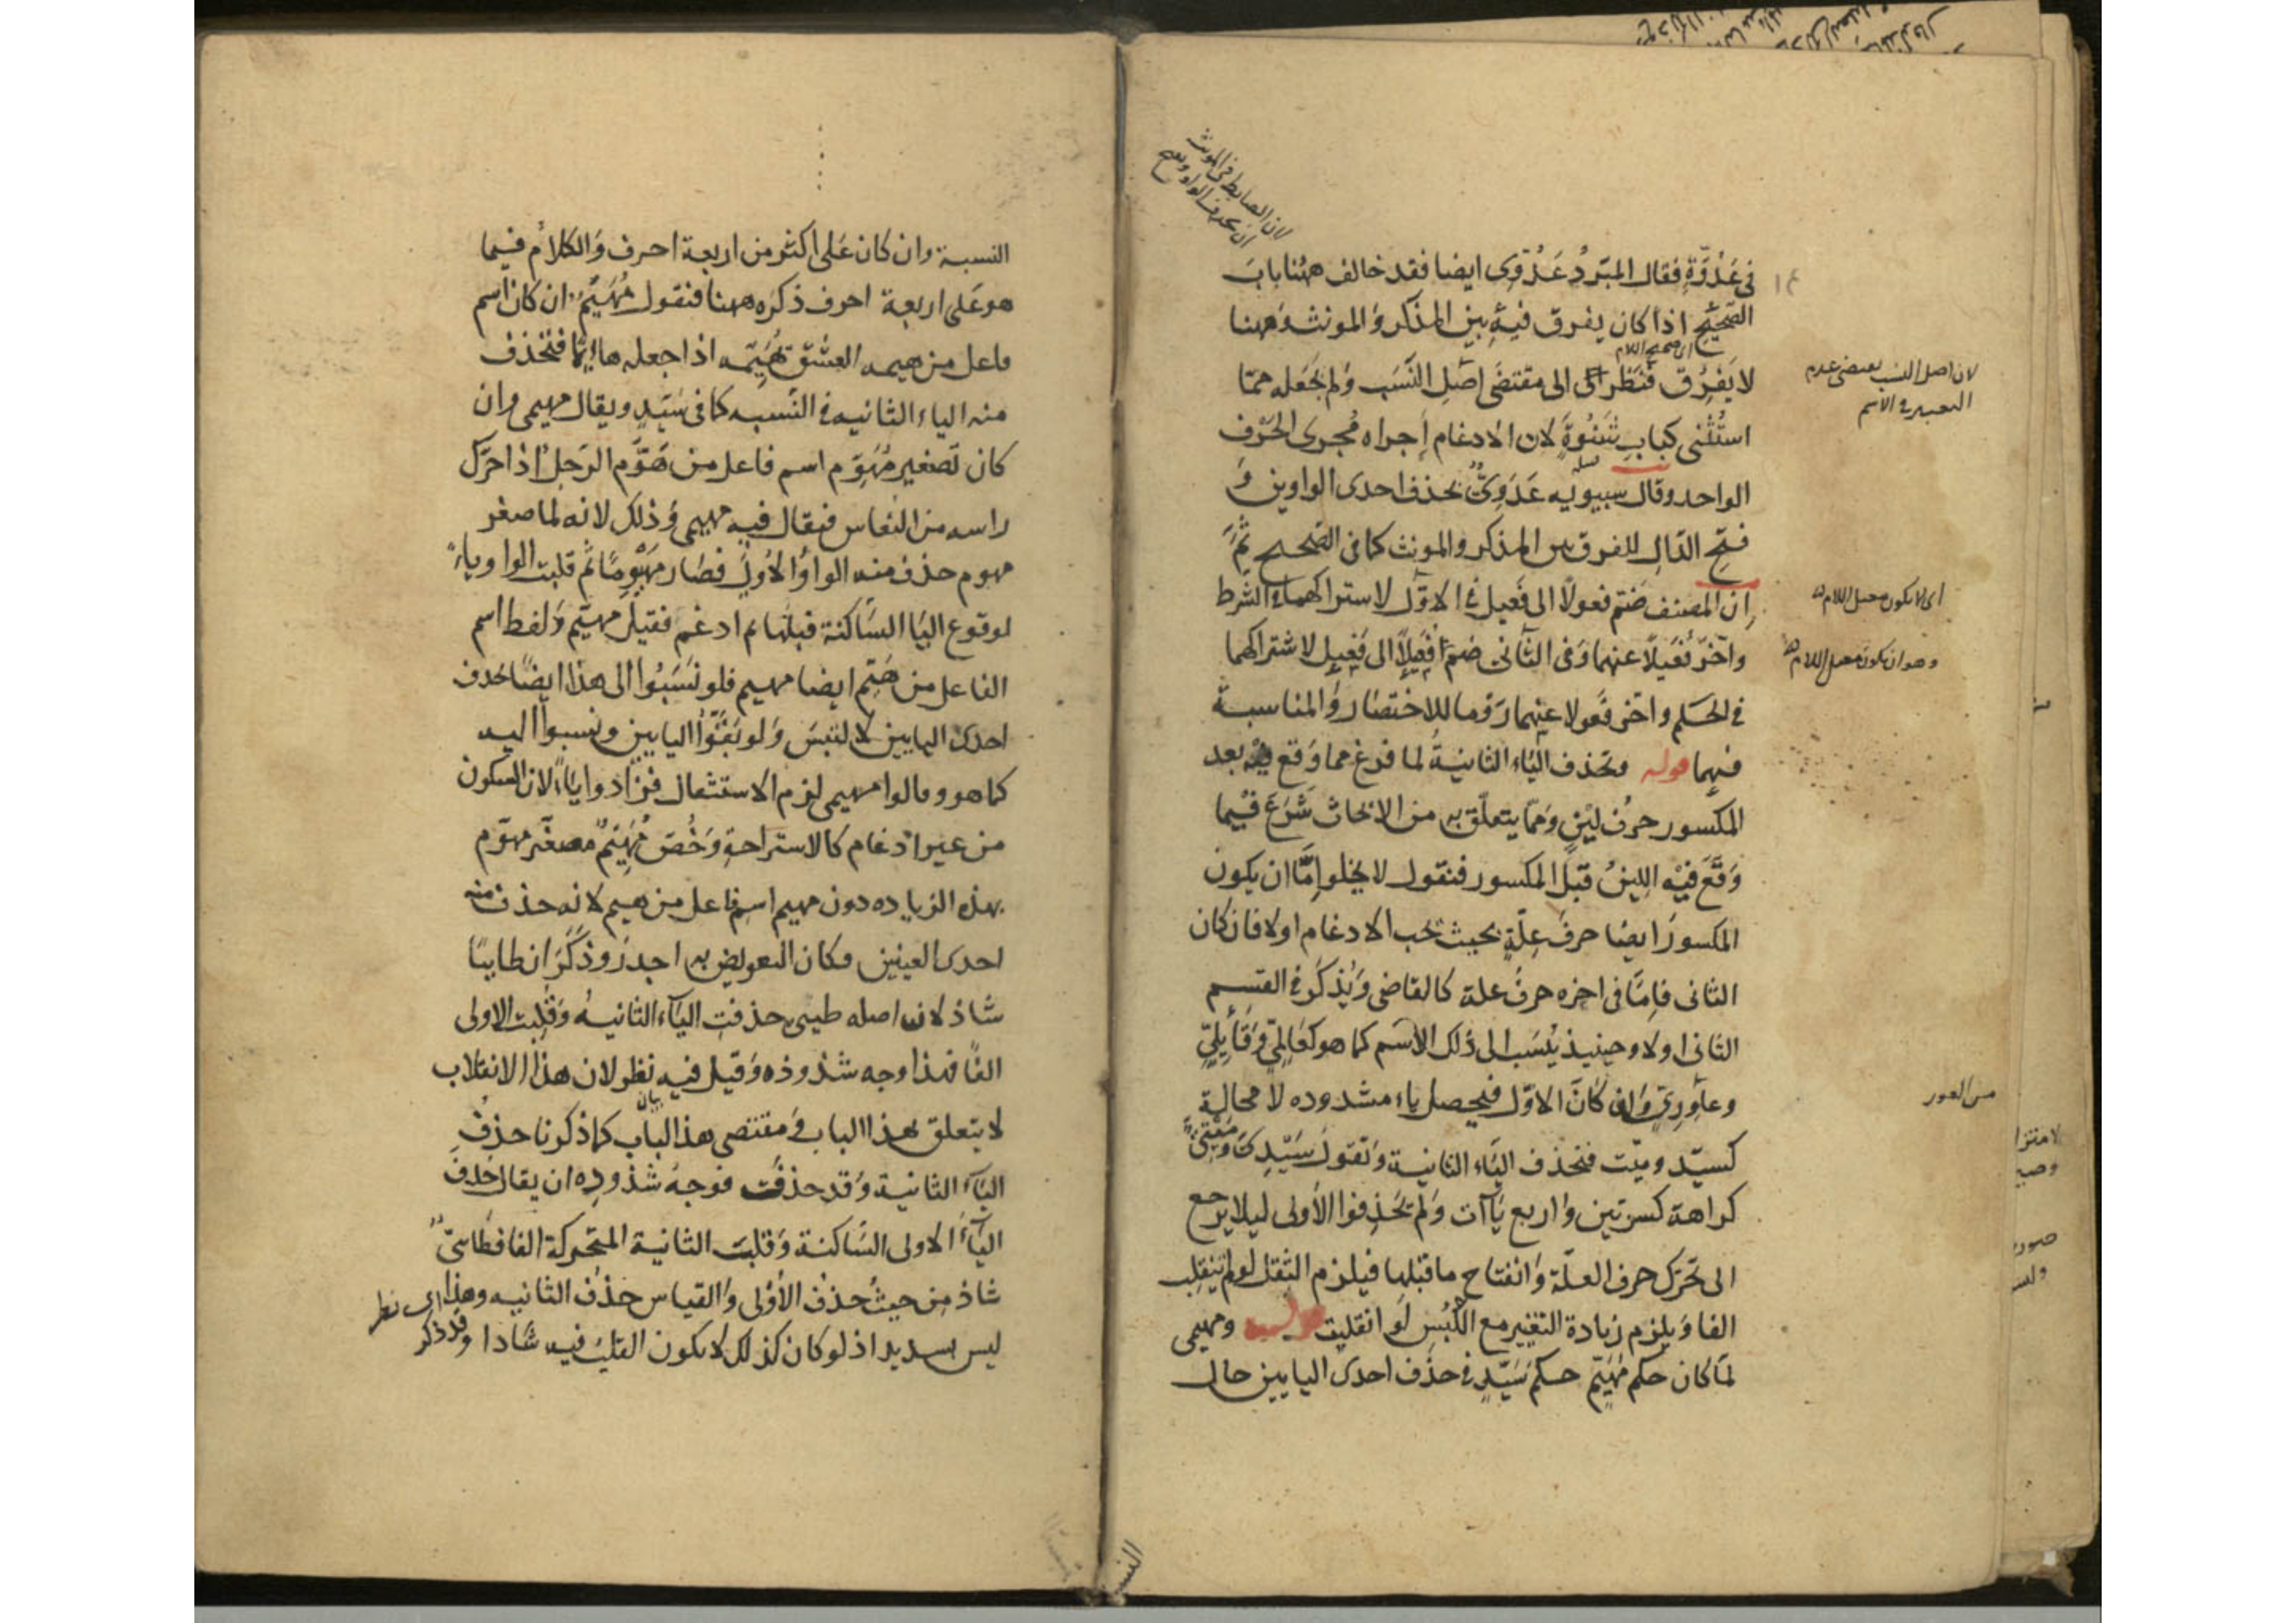 لان الضابط في المونث
ان يحذف الواو ويفتح
في عَدُوَّةٍ فقال المبَرّدُ عَدُوّى ايضا فقد خالف ههُنا بابَ
الصَّحِيْحِ اذا كان يفرق فيهِ بين المذكر وَالمونث وَههنا
اى صحيح اللام
لا يَفْرُق فنَظَر اى الى مقتضَى اَصْلِ النَّسَب وَلم يجْعَله ممّا
استُثْنى كبابِ شَنُوةَ لان الادغام اَجراه مُجرى الحَرْفِ
الواحد وقال سيبويه عَدَوِىٌّ بحذف احدى الواوين وَ
فتح الدّالِ للفرق بين المذكر والمونث كما فى الصَّحيح ثمّ
اِنّ المصنف ضَمّ فعولًا الى فَعيل فى الاوّل لاشتراكهما فى الشَّرط
وَاخّرَ فُعَيلًا عنهما وَفى الثّانى ضمّ فُعَيلًا الى فَعِيلٍ لاشتراكهما
فى الحكم واخّر فَعولا عنهما رَوْما للاختصار وَالمناسبة
فيهما قوله وتحذف اليَاء الثانيةُ لما فرغ مما وَقع فيه بعد
المكسور حرفُ ليْنٍ وَممّا يتعلّق به من الابحاث شَرَعَ فيْما
وَقَعَ فيْه اللينُ قبْلَ المكسور فنقول لا يخلوا اِمَّا ان يكون
المكسورُ ايضا حرفَ عِلّةٍ بحيث يجب الادغام اولا فان كان
الثانى فاِمّا فى اخره حرفُ علة كالقاضى وَيُذكَر فى القسم
الثانى اولا وحينيذ يُنْسَب الى ذٰلك الاسم كما هو كعَالِمِىّ وَقَايِلِىٍّ
وعَاوِرِىّ وَان كانَ الاوّل فيحصل ياء مشدوده لا محالة
كسيّد وميّت فتحذف اليَاء الثانية وَتقول سَيْدِىّ وَمَيْتِىٌّ
كراهة كسرتين وَاربع يَاآت وَلم يَحْذِفوا الأولى ليلا يرجع
الى تحَرّك حرف العلّة وَانفتاح ما قبلها فيلزم الثقل لو لم ينقلب
الفا وَيلزم زيادة التغيير مع اللَّبْسِ لَو انقلبت قوله ومهيمى
لمّا كان حكم مُهَيِّم حكمَ سَيّدٍ فى حذف احدى اليايين حال
لان اصل النسب يقتضى عدم
التغيير فى الاسم
اى لا يكون معتل اللام
وهو ان يكون معتل اللام
من العور
النسبة
النسبة وان كان عَلى اكثر من اربعة احرف وَالكلامُ فيما
هو عَلى اربعة احرف ذكرَه ههنا فنقول مُهَيِّمٌ ان كان اسم
فاعل من هيمه العِشْق تهيّمه اذا جعله هايِمًا فتحْذف
منه الياء الثانيه فى النّسبه كما فى سَيّدٍ ويقال مهيمى وان
كان تصغير مُهَوِّم اسم فاعل من هَوَّم الرَجل اذا حرّك
راسه من النعاس فيقال فيه مهييمى وَذلك لانه لما صغر
مهوم حذف منه الواوُ الأولى فصَار مهَيْوِمًا ثم قلبت الواو ياءً
لوقوع اليَا السَّاكنة قبلها ثم ادغم فقيل مهيّم وَلفظ اسم
الفاعل من هَيّم ايضا مهيم فلو نَسَبُوا الى هذا ايضًا بحذف
احدى اليايين لالتبسَ وَلو بَقَّوْا اليايين ونسبوا اليه
كما هو وقالوا مهيمى لزم الاستثقال فزَادوا ياءً لان السكون
من غير ادغام كالاستراحةِ وَخُصّ مُهَيّمٌ مصغّر مهوّم
بهذه الزياده دون مهيم اسم فاعل من هيم لانه حذف منه
احدى العينين فكان التعويض به اجدرَ وَذكَرَ ان طايِيًا
شاذ لان اصله طيبى حذفتِ اليآء الثانيهُ وَقلبت الاولى
الفًا فهذا وجه شذوذه وَقيل فيه نظر لان هذا الانقلاب
لا يتعلق بهذا الباب وَمقتضى هذا الباب كما ذكرنا حذفُ
اليآء الثانية وَقد حذفت فوجهُ شذوذِه ان يقال حُذف
اليآء الاولى السَّاكنة وَقلبت الثانية المتحركة الفا فطَائىٌّ
شاذ مِن حيثُ حذف الأوْلى وَالقياس حَذفُ الثانيه وهذا اى نظر
ليس بسديد اذ لو كان كذلك لا يكون القلبُ فيه شَاذا وقد ذكر